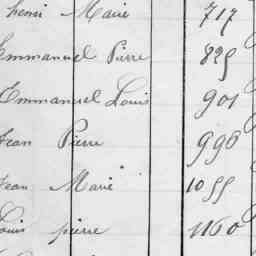 henri Marie 717
Emmanuel Pierre 829
Emmanuel Louis 901
Jean Pierre 996
Jean Marie 1099
Louis pierre 1160